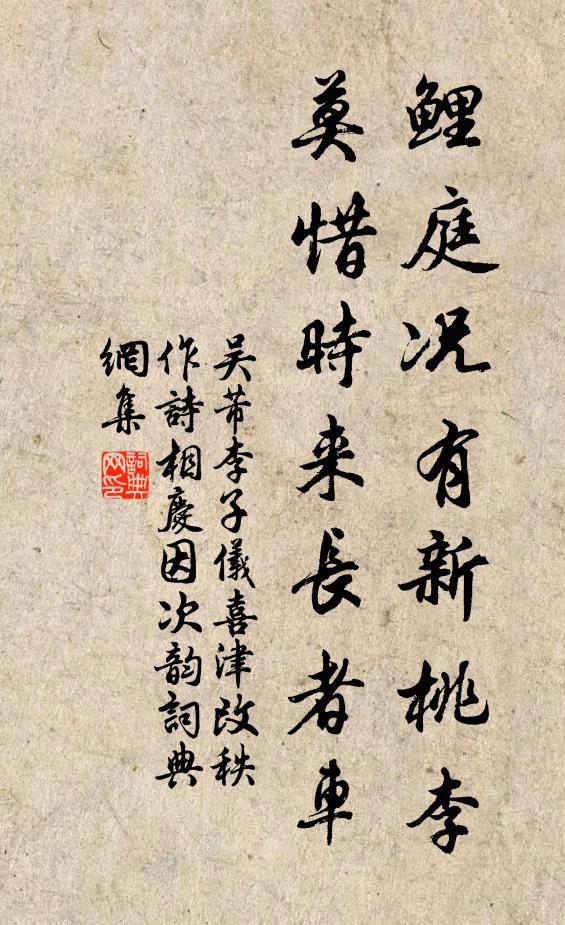 鲤庭况有新桃李
莫惜時来長者車
吴芾李子儀喜津改秩
作詩相慶因次韵詞典
網集
詞典
网印